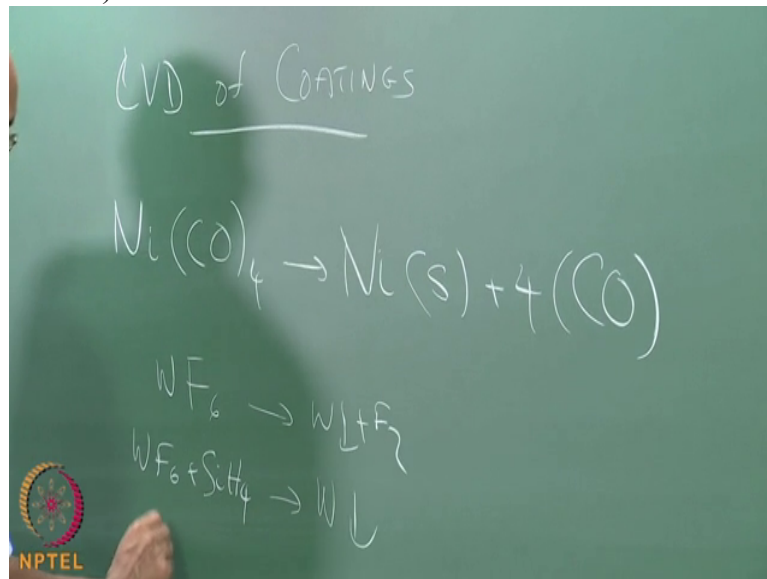 CVD of COATINGS
Ni(CO)₄ → Ni(s) + 4(CO)
WF₆ → W↓ + F₂
WF₆ + SiH₄ → W↓
NPTEL